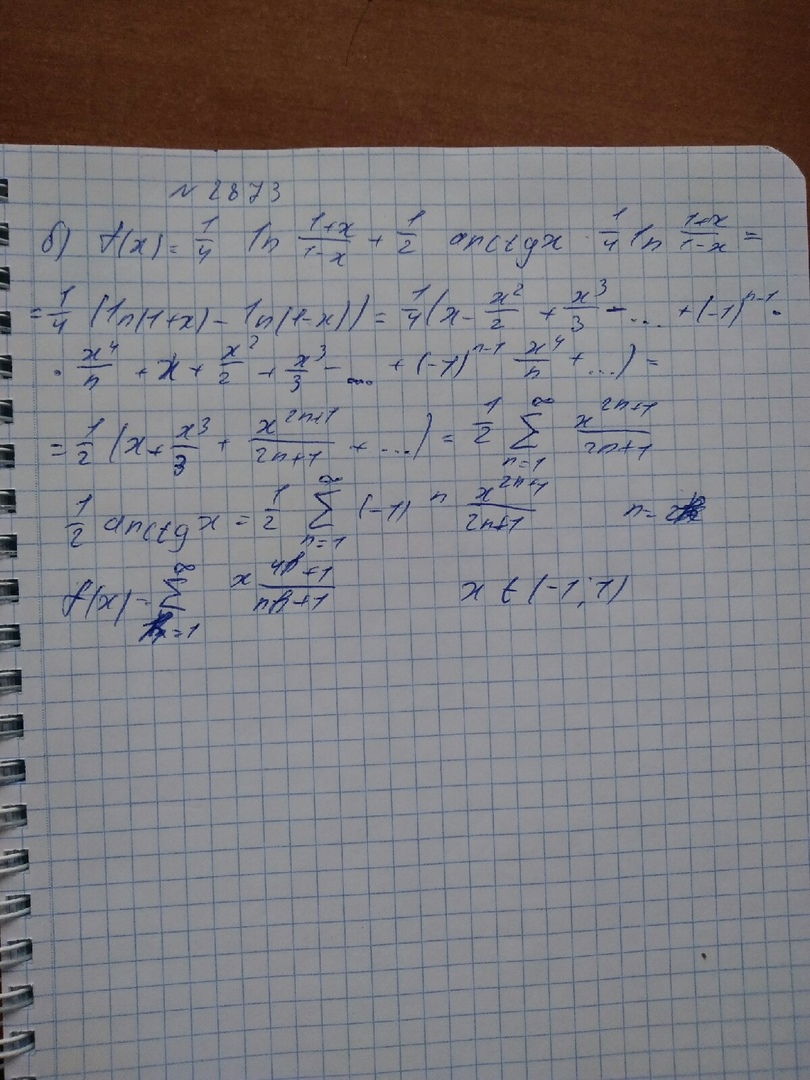 № 2873
б) f(x) = 1/4 ln (1+x)/(1-x) + 1/2 arctg x · 1/4 ln (1+x)/(1-x) =
= 1/4 (ln(1+x) - ln(1-x)) = 1/4 (x - x²/2 + x³/3 - ... + (-1)ⁿ⁻¹ ·
· x⁴/n + x + x²/2 + x³/3 - ... + (-1)ⁿ⁻¹ x⁴/n + ...) =
= 1/2 (x + x³/3 + x²ⁿ⁺¹/(2n+1) + ...) = 1/2 ∑_{n=1}^{∞} x²ⁿ⁺¹/(2n+1)
1/2 arctg x = 1/2 ∑_{n=1}^{∞} (-1)ⁿ x²ⁿ⁺¹/(2n+1) n = 2
f(x) = ∑_{n=1}^{∞} x +1 / +1 x ∈ (-1; 1)